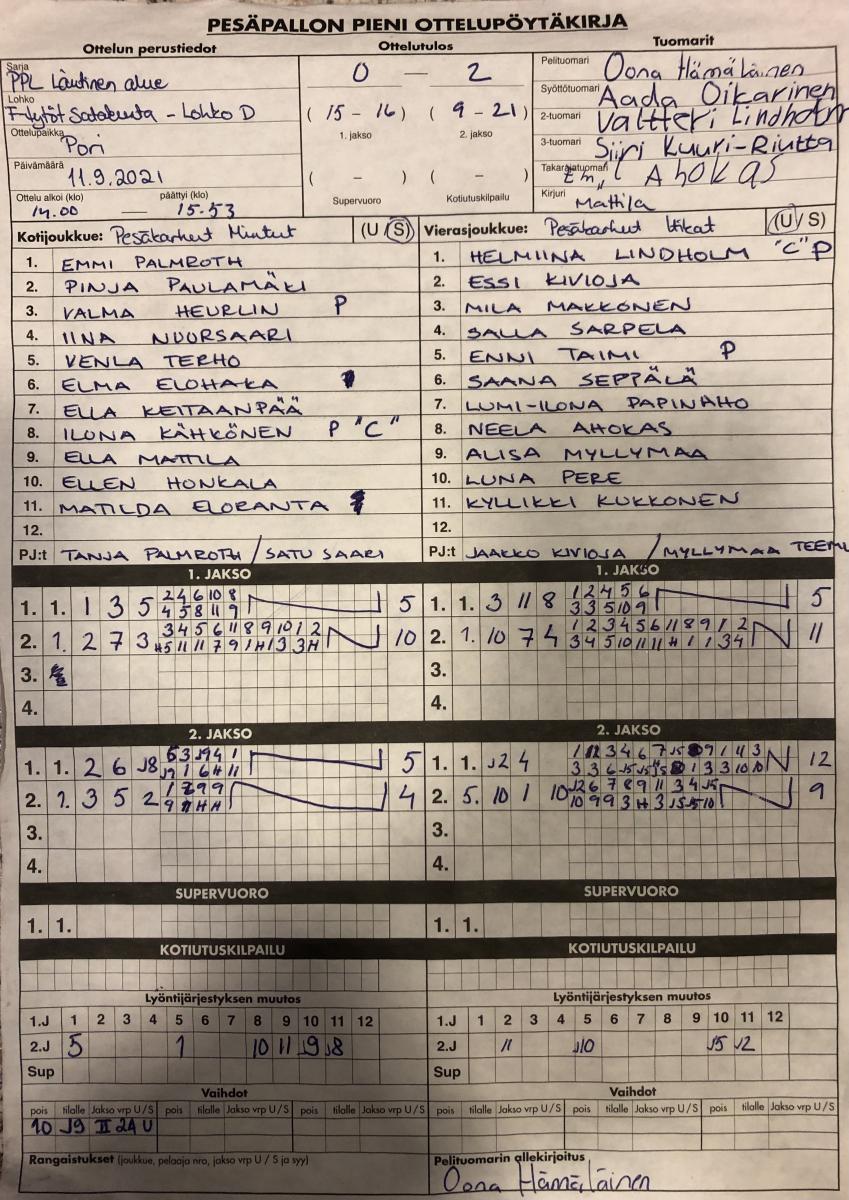 PESÄPALLON PIENI OTTELUPÖYTÄKIRJA
Ottelun perustiedot
Ottelutulos
Tuomarit
Sarja
PPL Läntinen alue
Lohko
F-tytöt Satakunta - Lohko D
Ottelupaikka
Pori
Päivämäärä
11.9.2021
Ottelu alkoi (klo) päättyi (klo)
14.00 — 15.53
0 — 2
( 15 - 16 ) ( 9 - 21 )
1. jakso 2. jakso
( - ) ( - )
Supervuoro Kotiutuskilpailu
Pelituomari Oona Hämäläinen
Syöttötuomari Aada Oikarinen
2-tuomari Valtteri Lindholm
3-tuomari Siiri Kuuri-Riutta
Takarajatuomari Ahokas
Kirjuri Mattila
Kotijoukkue: Pesäkarhut Mintut (U / S)
1. EMMI PALMROTH
2. PINJA PAULAMÄKI
3. VALMA HEURLIN P
4. IINA NUORSAARI
5. VENLA TERHO
6. ELMA ELOHAKA
7. ELLA KEITAANPÄÄ
8. ILONA KÄHKÖNEN P "C"
9. ELLA MATTILA
10. ELLEN HONKALA
11. MATILDA ELORANTA
12.
PJ:t TANJA PALMROTH / SATU SAARI
Vierasjoukkue: Pesäkarhut (U / S)
1. HELMIINA LINDHOLM "C" P
2. ESSI KIVIOJA
3. MILA MAKKONEN
4. SALLA SARPELA
5. ENNI TAIMI P
6. SAANA SEPPÄLÄ
7. LUMI-ILONA PAPINAHO
8. NEELA AHOKAS
9. ALISA MYLLYMAA
10. LUNA PERE
11. KYLLIKKI KUKKONEN
12.
PJ:t JAAKKO KIVIOJA / MYLLYMAA TEEMU
1. JAKSO
1. 1. 1 3 5 2 4 6 10 8 5
4 5 8 11 9
2. 1. 2 7 3 3 4 5 6 11 8 9 10 1 2 10
3.
4.
1. JAKSO
1. 1. 3 11 8 1 2 4 5 6 5
3 3 5 10 9
2. 1. 10 7 4 1 2 3 4 5 6 11 8 9 1 2 11
3.
4.
2. JAKSO
1. 1. 2 6 J8 5
2. 1. 3 5 2 4
3.
4.
2. JAKSO
1. 1. J2 4 12
2. 5. 10 1 10 9
3.
4.
SUPERVUORO
1. 1.
SUPERVUORO
1. 1.
KOTIUTUSKILPAILU
KOTIUTUSKILPAILU
Lyöntijärjestyksen muutos
1.J 1 2 3 4 5 6 7 8 9 10 11 12
2.J 5 1 10 11 J9 J8
Sup
Lyöntijärjestyksen muutos
1.J 1 2 3 4 5 6 7 8 9 10 11 12
2.J 11 J10 J5 J2
Vaihdot
pois tilalle Jakso vrp U / S pois tilalle Jakso vrp U / S pois tilalle Jakso vrp U / S
10 J9 II 2A U
Vaihdot
pois tilalle Jakso vrp U / S pois tilalle Jakso vrp U / S pois tilalle Jakso vrp U / S
Rangaistukset (joukkue, pelaaja nro, jakso vrp U / S ja syy)
Pelituomarin allekirjoitus
Oona Hämäläinen